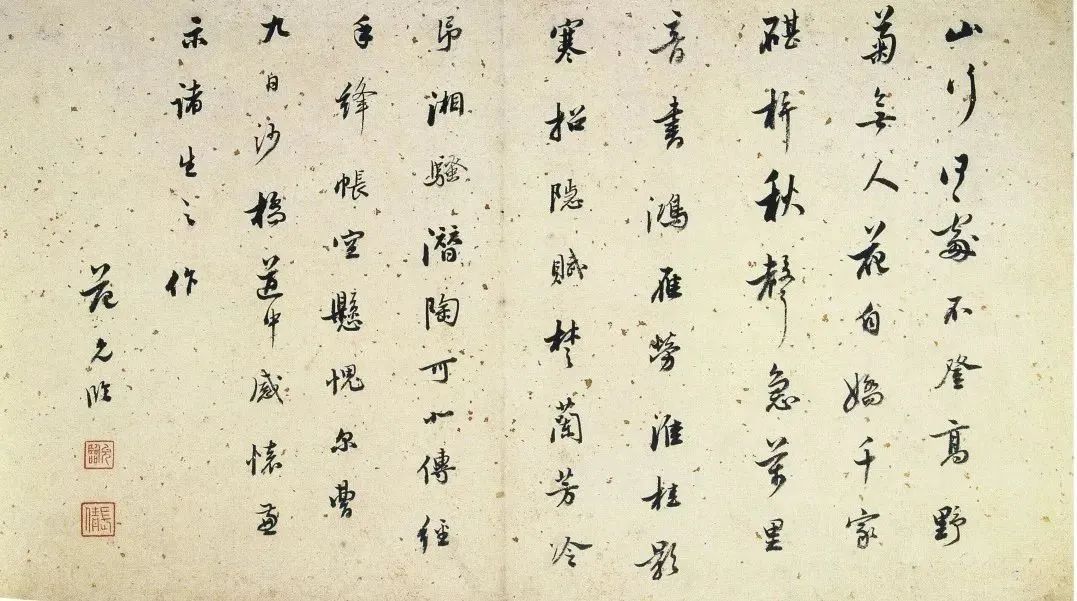 山行何處不登高野
菊無人花自嬌千家
碪杵秋聲急萬里
音書鴻雁勞淮桂影
寒招隱賦楚蘭芳冷
弔湘騷潛陶可以傳經
手絳帳空懸愧尔曹
九日沙橋道中感懷兼
示諸生之作
范允臨
允臨
長倩